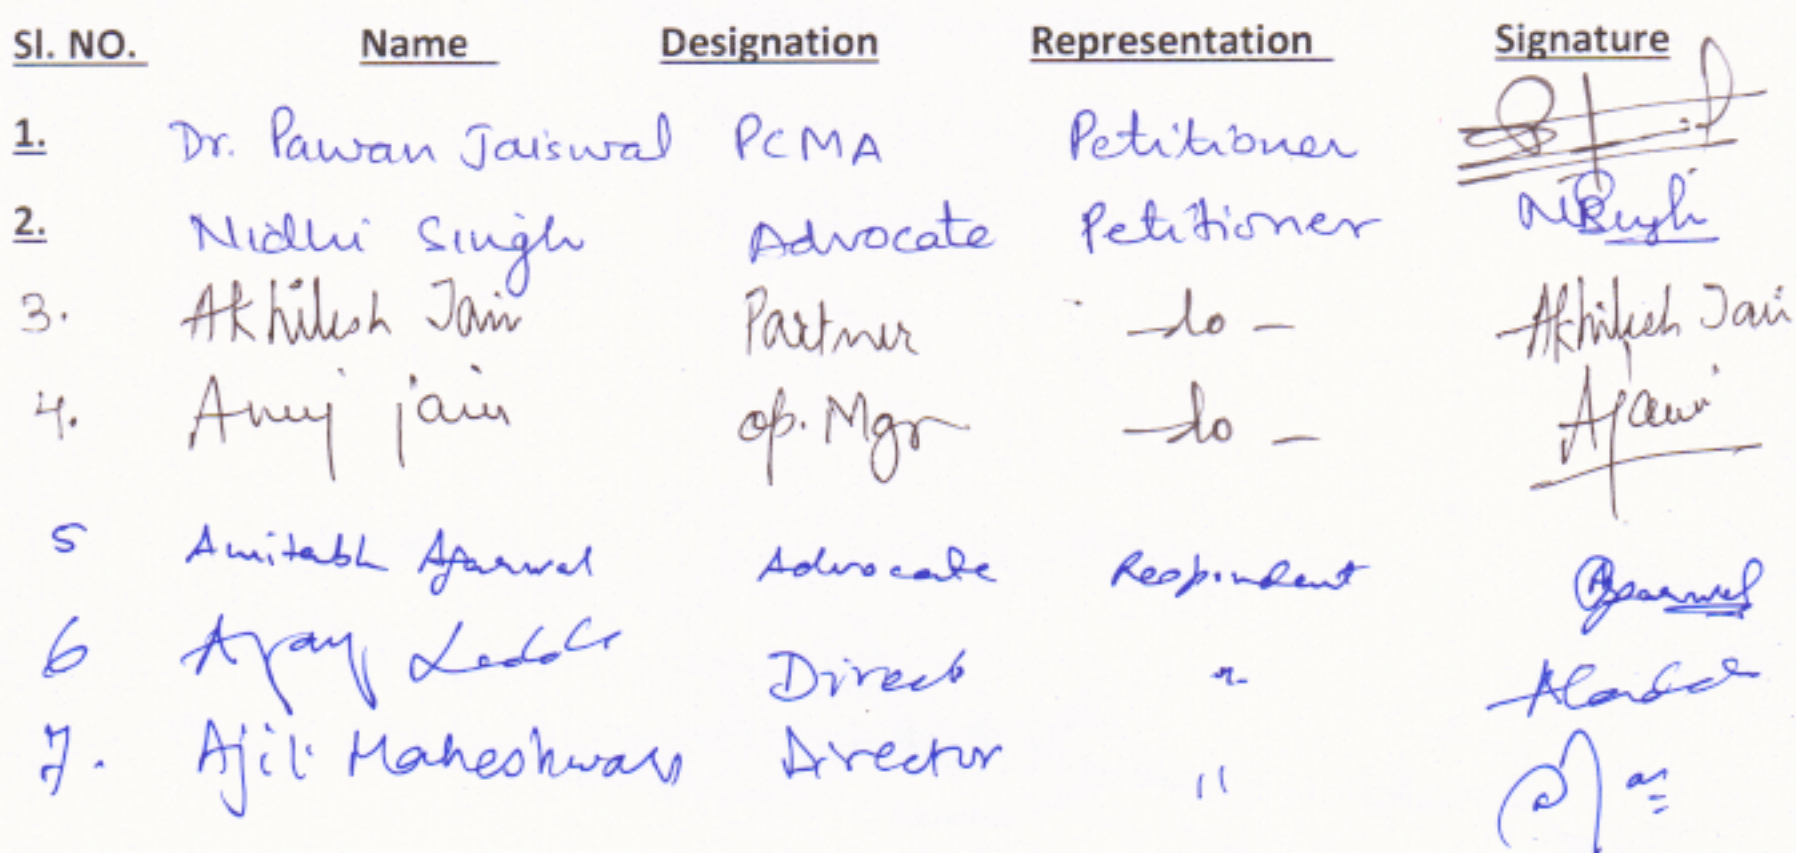 Sl. NO. Name Designation Representation Signature
1. Dr. Pawan Jaiswal PCMA Petitioner
2. Nidhi Singh Advocate Petitioner NSingh
3. Akhilesh Jain Partner -do- Akhilesh Jain
4. Anuj jain op. Mgr -do- AJain
5 Amitabh Agarwal Advocate Respondent Agarwal
6 Ajay Director "
7. Ajit Maheshwari Director "